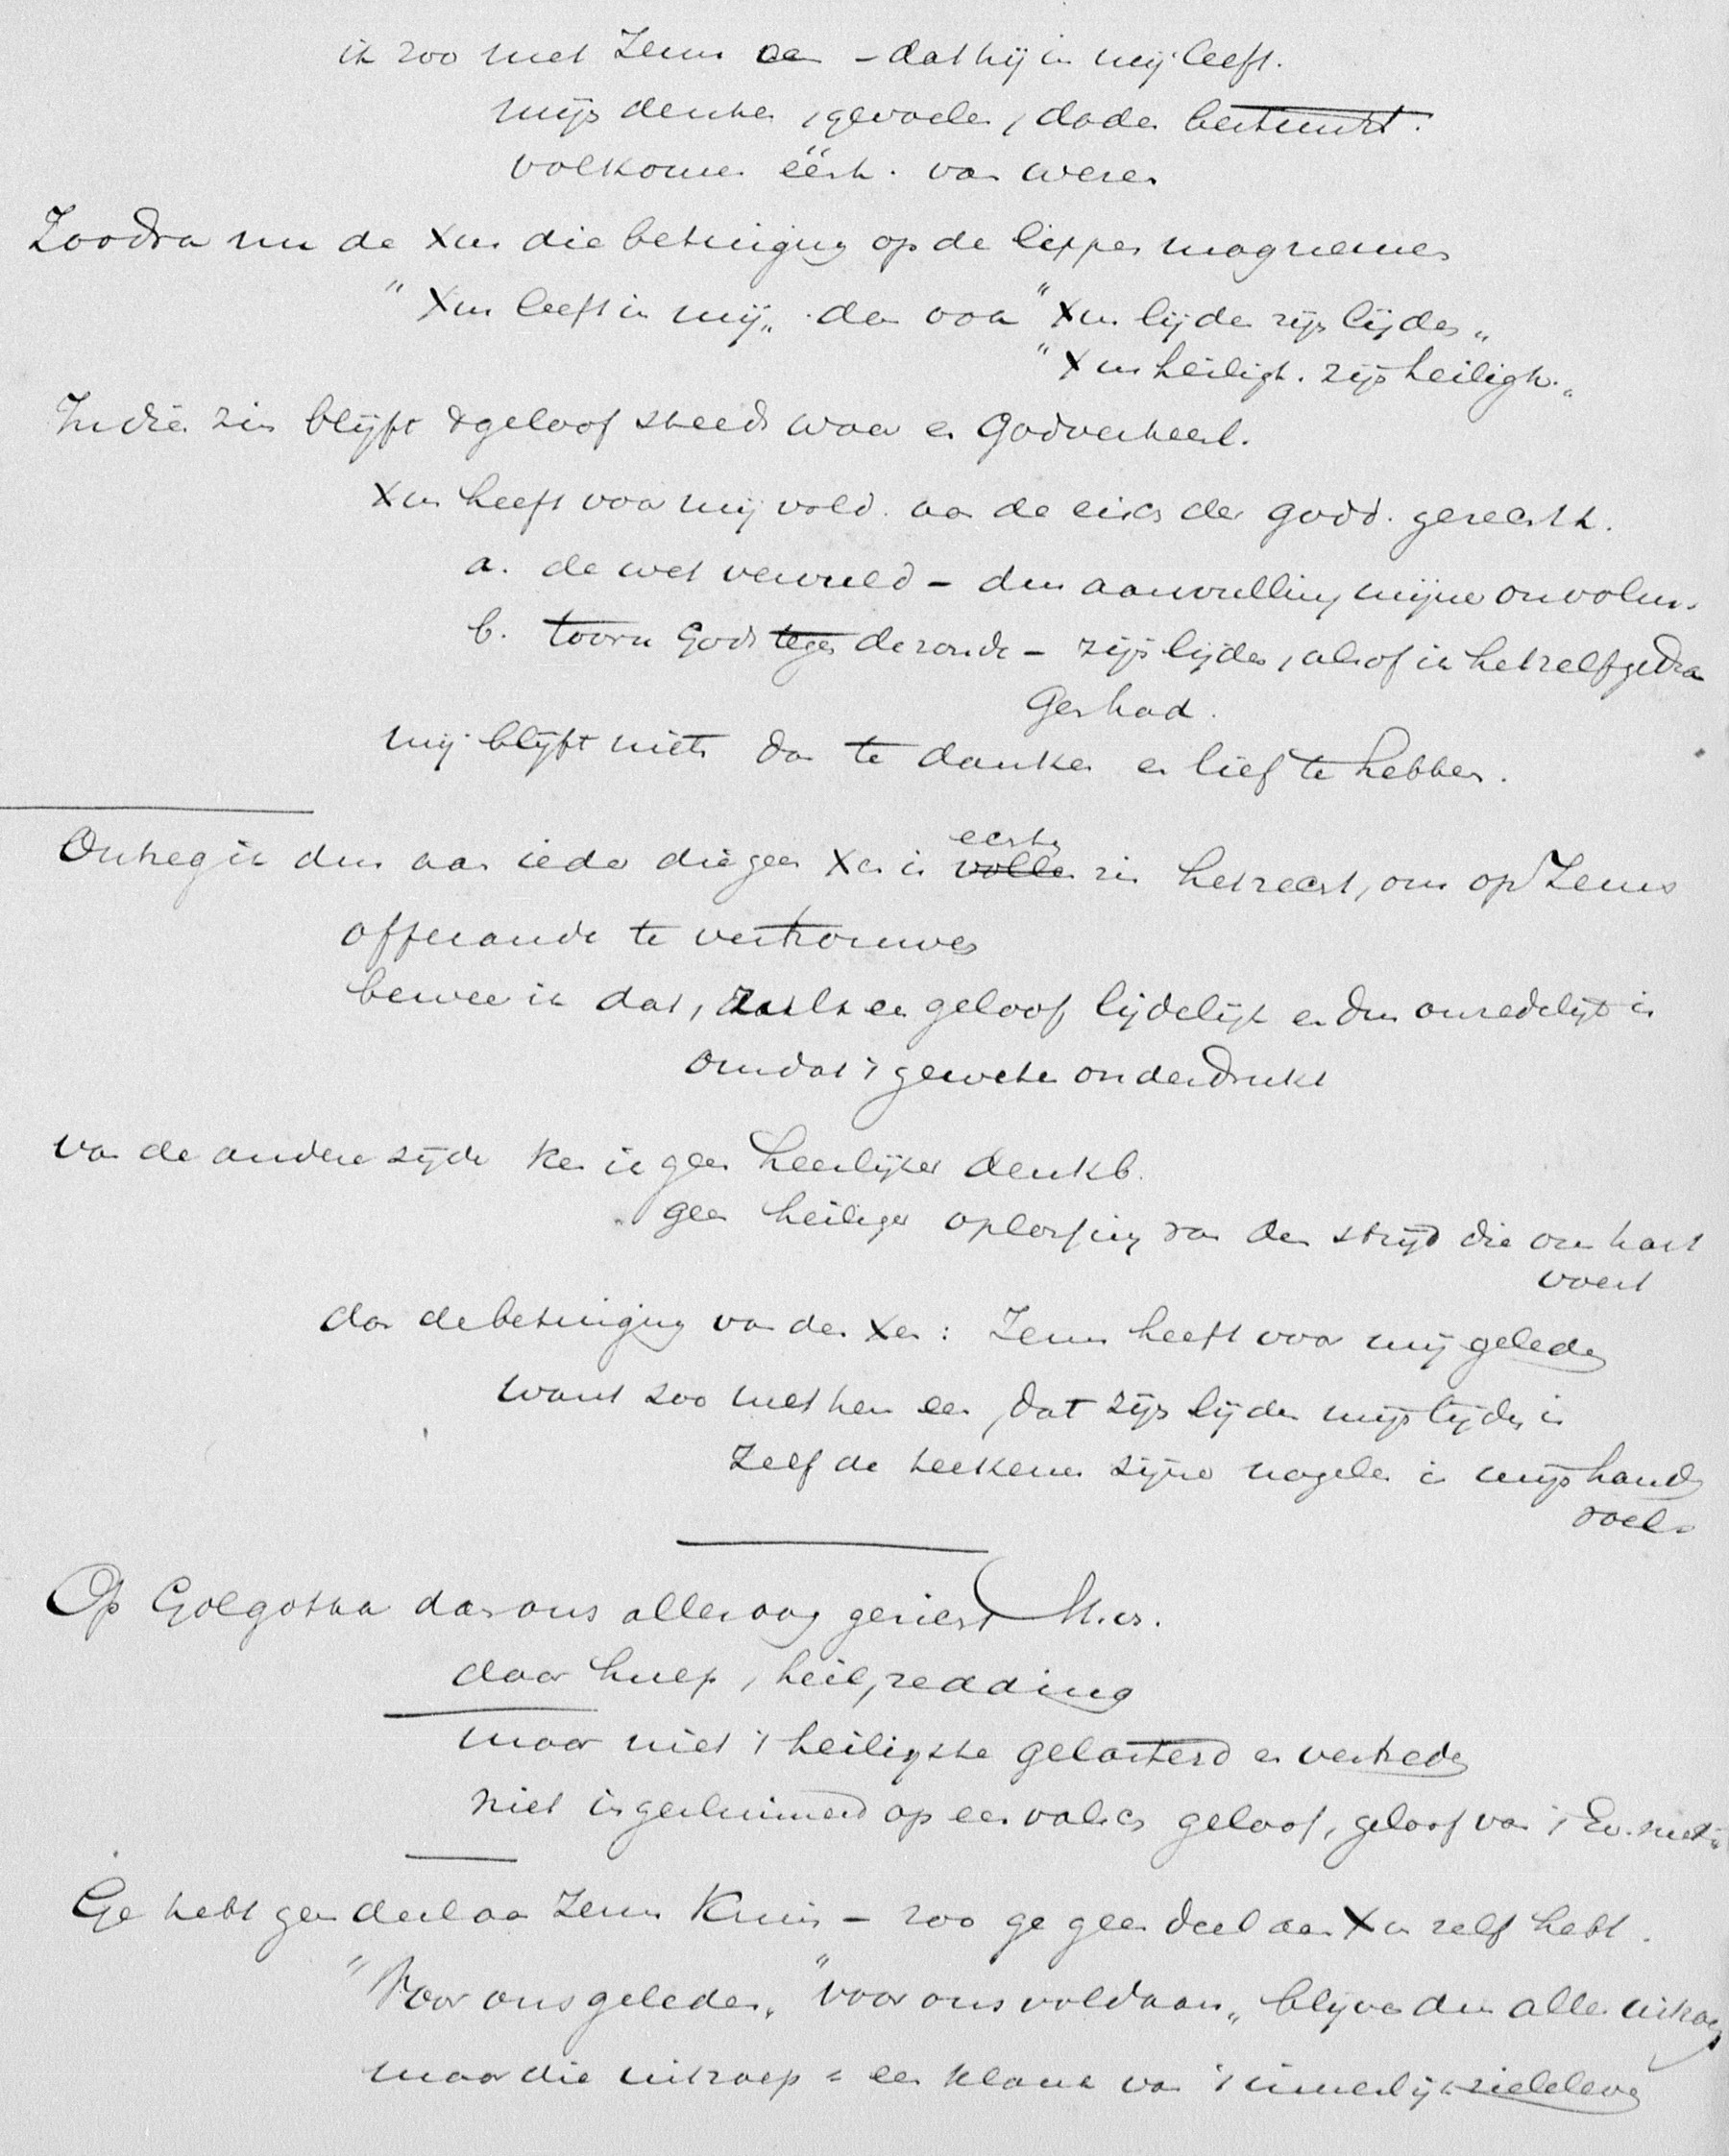 ik zoo met Jezus een – dat hij in mij leeft.
mijn denken, gevoelen, daden bestuurt.
volkomen éénh. van wezen
Zoodra nu de Xen die betuiging op de lippen mag nemen
"Xus leeft in mij„ dan ook "Xus lijden zijn lijden„
"Xus heiligh. zijn heiligh.„
In dien zin blijft 't geloof steeds waar en Godverheerl.
Xus heeft voor mij vold. aan de eisch der godd. gerechth.
a. de wet vervuld – dus aanvulling mijne onvolm.
b. toorn Gods tegen de zonde – zijn lijden, alsof ik het zelf gedra
gen had.
mij blijft niets dan te danken en lief te hebben.
Ontzeg ik dus aan ieder die geen Xen in echten zin het recht, om op Jezus
offerande te vertrouwen
beweer ik dat, zulk een geloof lijdelijk en dus onzedelijk is
omdat 't geweten onderdrukt
Van de andere zijde ken ik geen heerlijker denkb.
geen heiliger oplossing van den strijd die ons hart
voert
dan de betuiging van den Xen: Jezus heeft voor mij geleden
want zoo met hem een, dat zijn lijden mijn lijden is
Zelf de teekenen zijner nagelen in mijn handen
voel.
Op Golgotha dan ons aller oog gericht M. vs.
daar hulp, heil, redding
maar niet 't heiligste gelasterd en vertreden
niet ingesluimerd op een valsch geloof, geloof van 't Ev. niet is
Ge hebt geen deel aan Jezus Kruis – zoo ge geen deel aan Xus zelf hebt.
"Voor ons geleden„ "voor ons voldaan„ blijve dus aller uitroep
maar die uitroep = een klank van 't innerlijk zieleleven